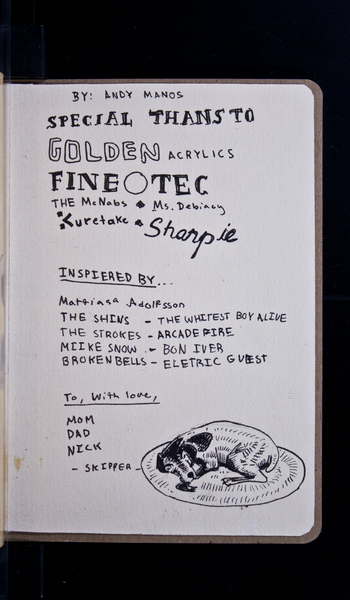 BY: ANDY MANOS
SPECIAL THANS TO
GOLDEN ACRYLICS
FINE TEC
THE McNabs Ms. Debiacy
Kuretake Sharpie
INSPIERED BY...
Mattiasa Adolfsson
THE SHINS - THE WHITEST BOY ALIVE
THE STROKES - ARCADE FIRE
MIIKE SNOW - BON IVER
BROKEN BELLS - ELETRIC GUEST
To, With love,
MOM
DAD
NICK
- SKIPPER -